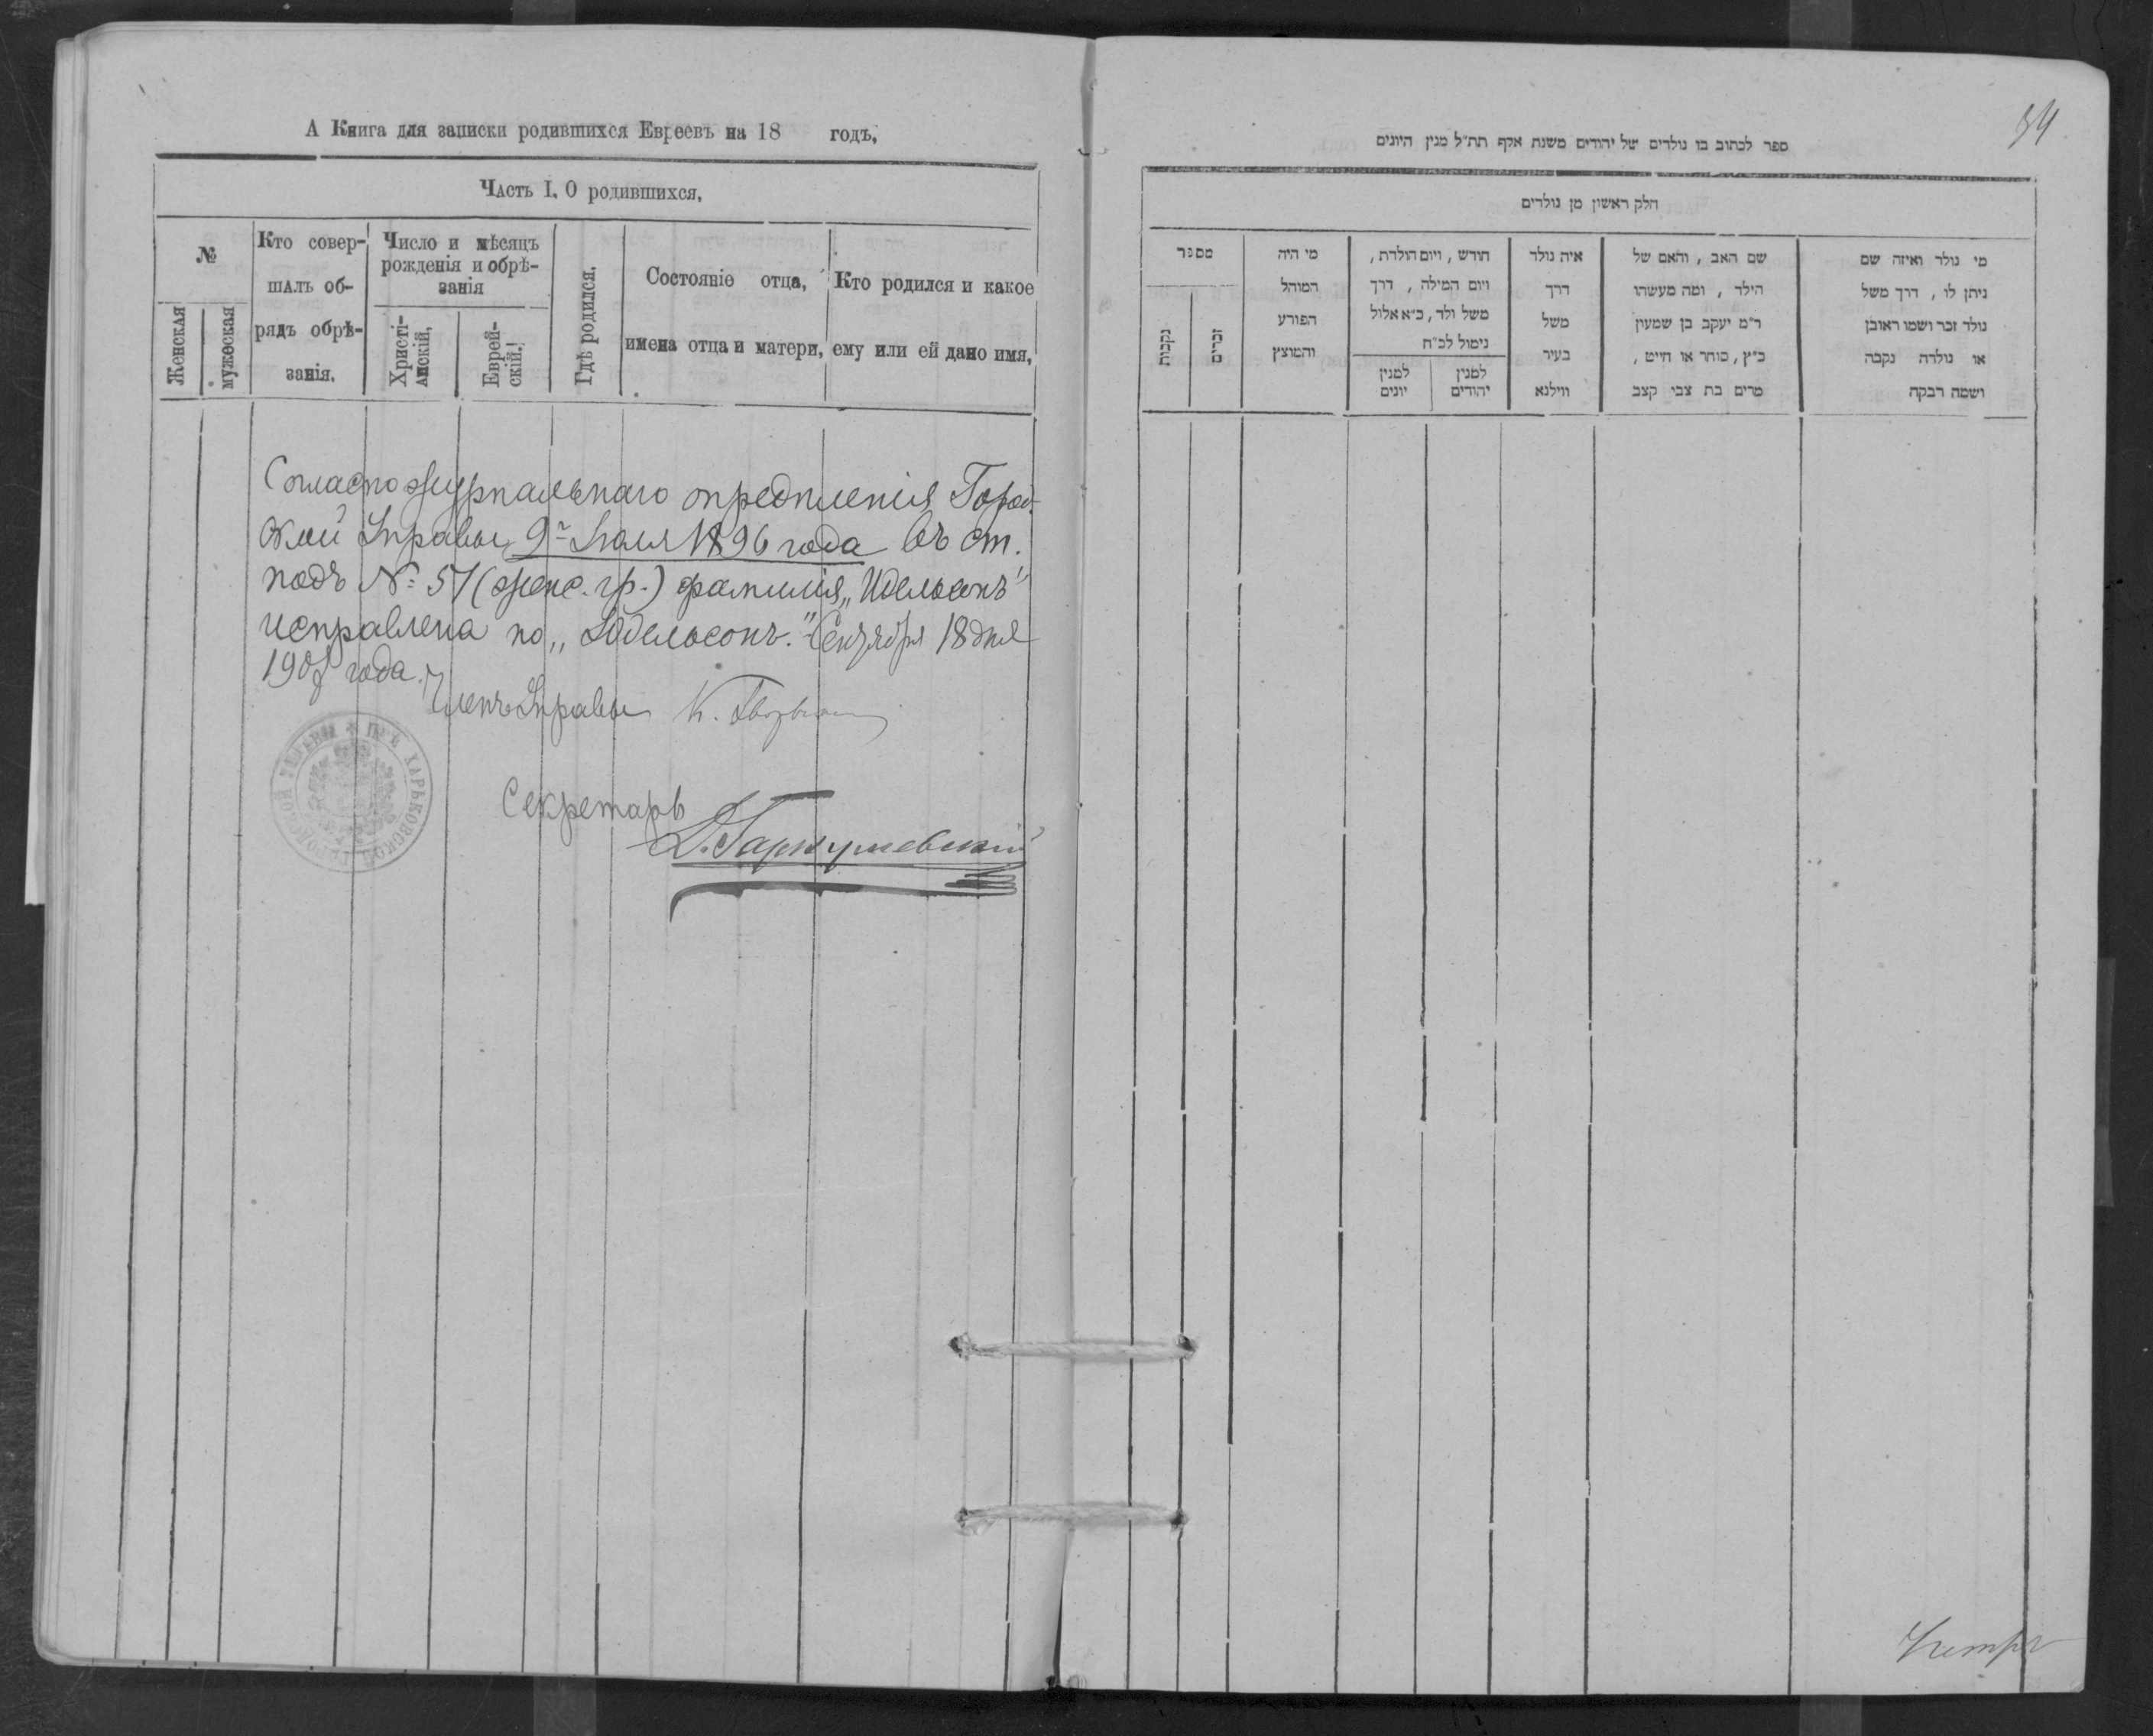 А Книга для записки родившихся Евреевъ на 18 годъ,
Часть I, О родившихся,
№
Женская
мужеская
Кто совер-
шалъ об-
рядъ обрѣ-
занія.
Число и мѣсяцъ
рожденія и обрѣ-
занія
Христі-
анскій,
Еврей-
скій.
Гдѣ родился.
Состояніе отца,
имена отца и матери,
Кто родился и какое
ему или ей дано имя,
Согласно журнальнаго опредѣленія Город-
ской Управы, 9го Іюля 1896 года въ ст.
подъ № 51 (женс. гр.) фамилія „Идельсонъ"
исправлена на „Юдельсонъ." Сентября 18 дня
190 года.
Членъ Управы К.
Секретарь
Д. Гаркушевскій
ХАРЬКОВСКОЙ ГОРОДСКОЙ
54
ספר לכתוב בו נולדים של יהודים משנת אלף תת״ל מנין היונים
חלק ראשון מן נולדים
מספר
נקבות
זכרים
מי היה
המוהל
הפורע
והמוצץ
חודש , ויום הולדת ,
ויום המילה , דרך
משל ולד , כ״א אלול
נימול לכ״ח
למנין
יהודים
למנין
יונים
איה נולד
דרך
משל
בעיר
ווילנא
שם האב , והאם של
הילד , ומה מעשהו
ר״מ יעקב בן שמעון
כ״ץ , סוחר או חייט ,
מרים בת צבי קצב
מי נולד ואיזה שם
ניתן לו , דרך משל
נולד זכר ושמו ראובן
או נולדה נקבה
ושמה רבקה